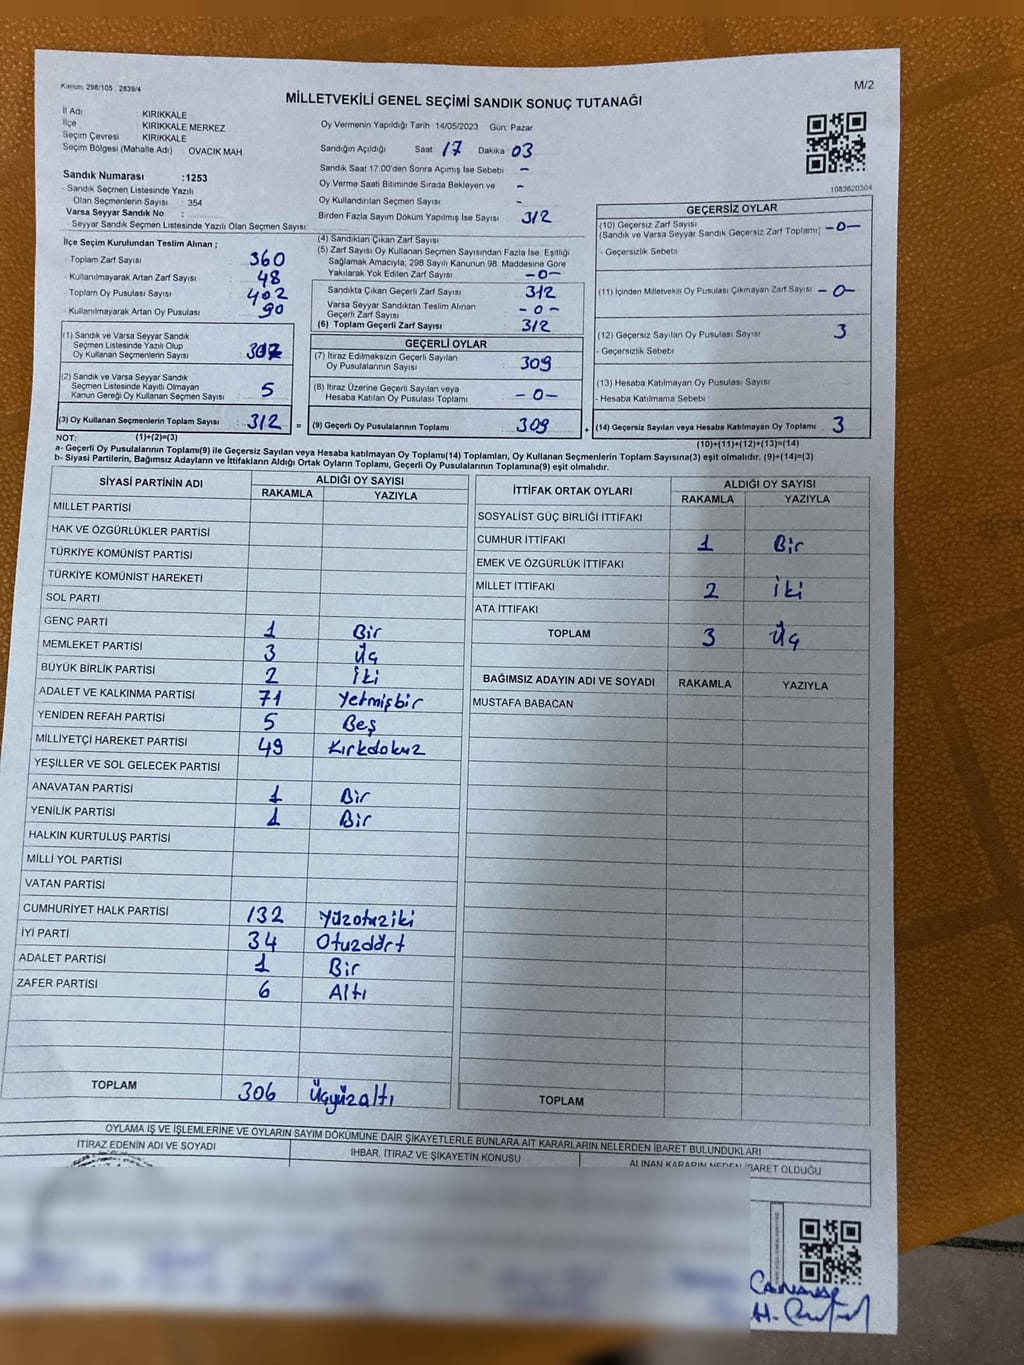 Kanun, 298/105 , 2839/4
M/2
MİLLETVEKİLİ GENEL SEÇİMİ SANDIK SONUÇ TUTANAĞI
İl Adı : KIRIKKALE
İlçe KIRIKKALE MERKEZ
Seçim Çevresi : KIRIKKALE
Seçim Bölgesi (Mahalle Adı) : OVACIK MAH
Sandık Numarası :1253
Sandık Seçmen Listesinde Yazılı
Olan Seçmenlerin Sayısı : 354
Varsa Seyyar Sandık No :
Seyyar Sandık Seçmen Listesinde Yazılı Olan Seçmen Sayısı
Oy Vermenin Yapıldığı Tarih : 14/05/2023 Gün: Pazar
Sandığın Açıldığı Saat 17 Dakika 03
Sandık Saat 17.00'den Sonra Açımış İse Sebebi -
Oy Verme Saati Bitiminde Sırada Bekleyen ve -
Oy Kullandırılan Seçmen Sayısı -
Birden Fazla Sayım Döküm Yapılmış İse Sayısı 312
1083620304
İlçe Seçim Kurulundan Teslim Alınan ;
- Toplam Zarf Sayısı : 360
- Kullanılmayarak Artan Zarf Sayısı : 48
- Toplam Oy Pusulası Sayısı : 402
- Kullanılmayarak Artan Oy Pusulası : 90
(1) Sandık ve Varsa Seyyar Sandık
Seçmen Listesinde Yazılı Olup
Oy Kullanan Seçmenlerin Sayısı : 307
(2) Sandık ve Varsa Seyyar Sandık
Seçmen Listesinde Kayıtlı Olmayan
Kanun Gereği Oy Kullanan Seçmen Sayısı : 5
(3) Oy Kullanan Seçmenlerin Toplam Sayısı : 312
(4) Sandıktan Çıkan Zarf Sayısı
(5) Zarf Sayısı Oy Kullanan Seçmen Sayısından Fazla İse, Eşitliği
Sağlamak Amacıyla, 298 Sayılı Kanunun 98. Maddesine Göre
Yakılarak Yok Edilen Zarf Sayısı -0-
Sandıkta Çıkan Geçerli Zarf Sayısı : 312
Varsa Seyyar Sandıktan Teslim Alınan
Geçerli Zarf Sayısı : -0-
(6) Toplam Geçerli Zarf Sayısı : 312
GEÇERLİ OYLAR
(7) İtiraz Edilmeksizin Geçerli Sayılan
Oy Pusulalarının Sayısı : 309
(8) İtiraz Üzerine Geçerli Sayılan veya
Hesaba Katılan Oy Pusulası Toplamı : -0-
= (9) Geçerli Oy Pusulalarının Toplamı : 309
GEÇERSİZ OYLAR
(10) Geçersiz Zarf Sayısı
(Sandık ve Varsa Seyyar Sandık Geçersiz Zarf Toplamı) -0-
- Geçersizlik Sebebi :
(11) İçinden Milletvekili Oy Pusulası Çıkmayan Zarf Sayısı -0-
(12) Geçersiz Sayılan Oy Pusulası Sayısı : 3
- Geçersizlik Sebebi :
(13) Hesaba Katılmayan Oy Pusulası Sayısı :
- Hesaba Katılmama Sebebi :
+ (14) Geçersiz Sayılan veya Hesaba Katılmayan Oy Toplamı : 3
NOT: (1)+(2)=(3) (10)+(11)+(12)+(13)=(14)
a- Geçerli Oy Pusulalarının Toplamı(9) ile Geçersiz Sayılan veya Hesaba katılmayan Oy Toplamı(14) Toplamları, Oy Kullanan Seçmenlerin Toplam Sayısına(3) eşit olmalıdır. (9)+(14)=(3)
b- Siyasi Partilerin, Bağımsız Adayların ve İttifakların Aldığı Ortak Oyların Toplamı, Geçerli Oy Pusulalarının Toplamına(9) eşit olmalıdır.
SİYASİ PARTİNİN ADI ALDIĞI OY SAYISI
RAKAMLA YAZIYLA
MİLLET PARTİSİ
HAK VE ÖZGÜRLÜKLER PARTİSİ
TÜRKİYE KOMÜNİST PARTİSİ
TÜRKİYE KOMÜNİST HAREKETİ
SOL PARTİ
GENÇ PARTİ 1 Bir
MEMLEKET PARTİSİ 3 Üç
BÜYÜK BİRLİK PARTİSİ 2 İki
ADALET VE KALKINMA PARTİSİ 71 Yetmişbir
YENİDEN REFAH PARTİSİ 5 Beş
MİLLİYETÇİ HAREKET PARTİSİ 49 Kırkdokuz
YEŞİLLER VE SOL GELECEK PARTİSİ
ANAVATAN PARTİSİ 1 Bir
YENİLİK PARTİSİ 1 Bir
HALKIN KURTULUŞ PARTİSİ
MİLLİ YOL PARTİSİ
VATAN PARTİSİ
CUMHURİYET HALK PARTİSİ 132 Yüzotuziki
İYİ PARTİ 34 Otuzdört
ADALET PARTİSİ 1 Bir
ZAFER PARTİSİ 6 Altı
TOPLAM 306 Üçyüzaltı
İTTİFAK ORTAK OYLARI ALDIĞI OY SAYISI
RAKAMLA YAZIYLA
SOSYALİST GÜÇ BİRLİĞİ İTTİFAKI
CUMHUR İTTİFAKI 1 Bir
EMEK VE ÖZGÜRLÜK İTTİFAKI
MİLLET İTTİFAKI 2 İki
ATA İTTİFAKI
TOPLAM 3 Üç
BAĞIMSIZ ADAYIN ADI VE SOYADI RAKAMLA YAZIYLA
MUSTAFA BABACAN
TOPLAM
OYLAMA İŞ VE İŞLEMLERİNE VE OYLARIN SAYIM DÖKÜMÜNE DAİR ŞİKAYETLERLE BUNLARA AİT KARARLARIN NELERDEN İBARET BULUNDUKLARI
İTİRAZ EDENİN ADI VE SOYADI İHBAR, İTİRAZ VE ŞİKAYETİN KONUSU ALINAN KARARIN NEDEN İBARET OLDUĞU